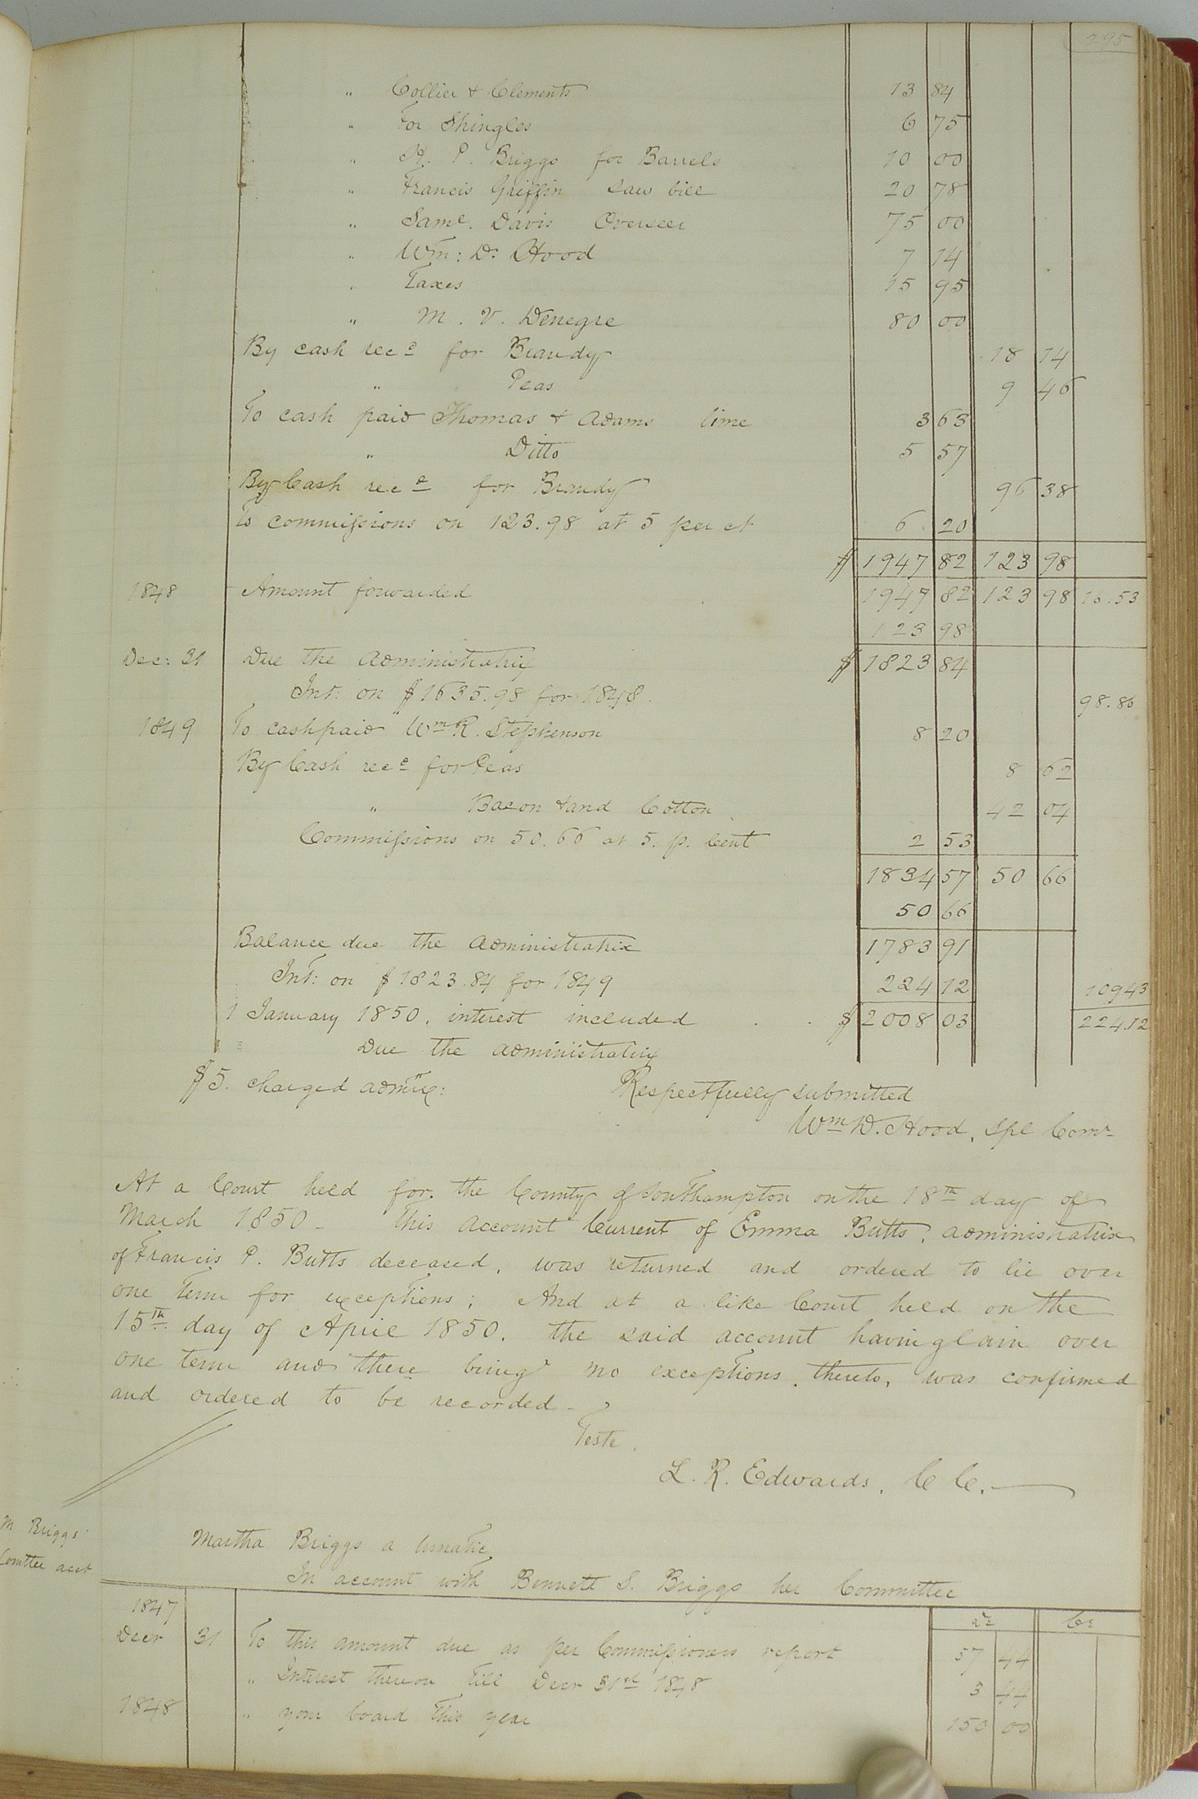 295
" Collier & Clements 13 84
" For Shingles 6 75
" P. Briggs for Barrels 10 00
" Francis Griffin Saw bill 20 78
" Saml. Davis Overseer 75 00
" Wm: D. Hood 7 14
" Taxes 15 95
" M. V. Denegre 80 00
By cash recd for Brandy 18 14
" Peas 9 46
To cash paid Thomas & Adams lime 3 63
" Ditto 5 57
By Cash recd for Brandy 96 38
To commissions on 123.98 at 5 per ct 6 20
$ 1947 82 123 98
1848 Amount forwarded 1947 82 123 98 16.53
123 98
Dec: 31 Due the Administratrix $ 1823 84
Int: on $1635.98 for 1848. 98.86
1849 To cash paid Wm R. Stephenson 8 20
By Cash recd for Peas 8 62
" Bacon & and Cotton 42 04
Commissions on 50.66 at 5. p. Cent 2 53
1834 57 50 66
50 66
Balance due the administratrix 1783 91
Int: on $1823.84 for 1849 224 12 109 43
1 January 1850. interest included $ 2008 03 224.12
Due the administratrix
$5. charged admrx: Respectfully submitted
Wm D. Hood, Spl Comr
At a Court held for the County of Southampton on the 18th day of
March 1850 - This Account Current of Emma Butts, administratrix
of Francis P. Butts deceased, was returned and ordered to lie over
one term for exceptions; And at a like Court held on the
15th day of April 1850. the said account having lain over
one term and there being no exceptions thereto, was confirmed
and ordered to be recorded -
Teste.
L. R. Edwards, C C.
M Briggs'
Comttee acct
Martha Briggs a lunatic
In account with Bennett S. Briggs her Committee
1847 Dr Cr
Decr 31 To this amount due as per Commissioners report 57 44
" Interest thereon till Decr 31st 1848 3 44
1848 " your board this year 150 00